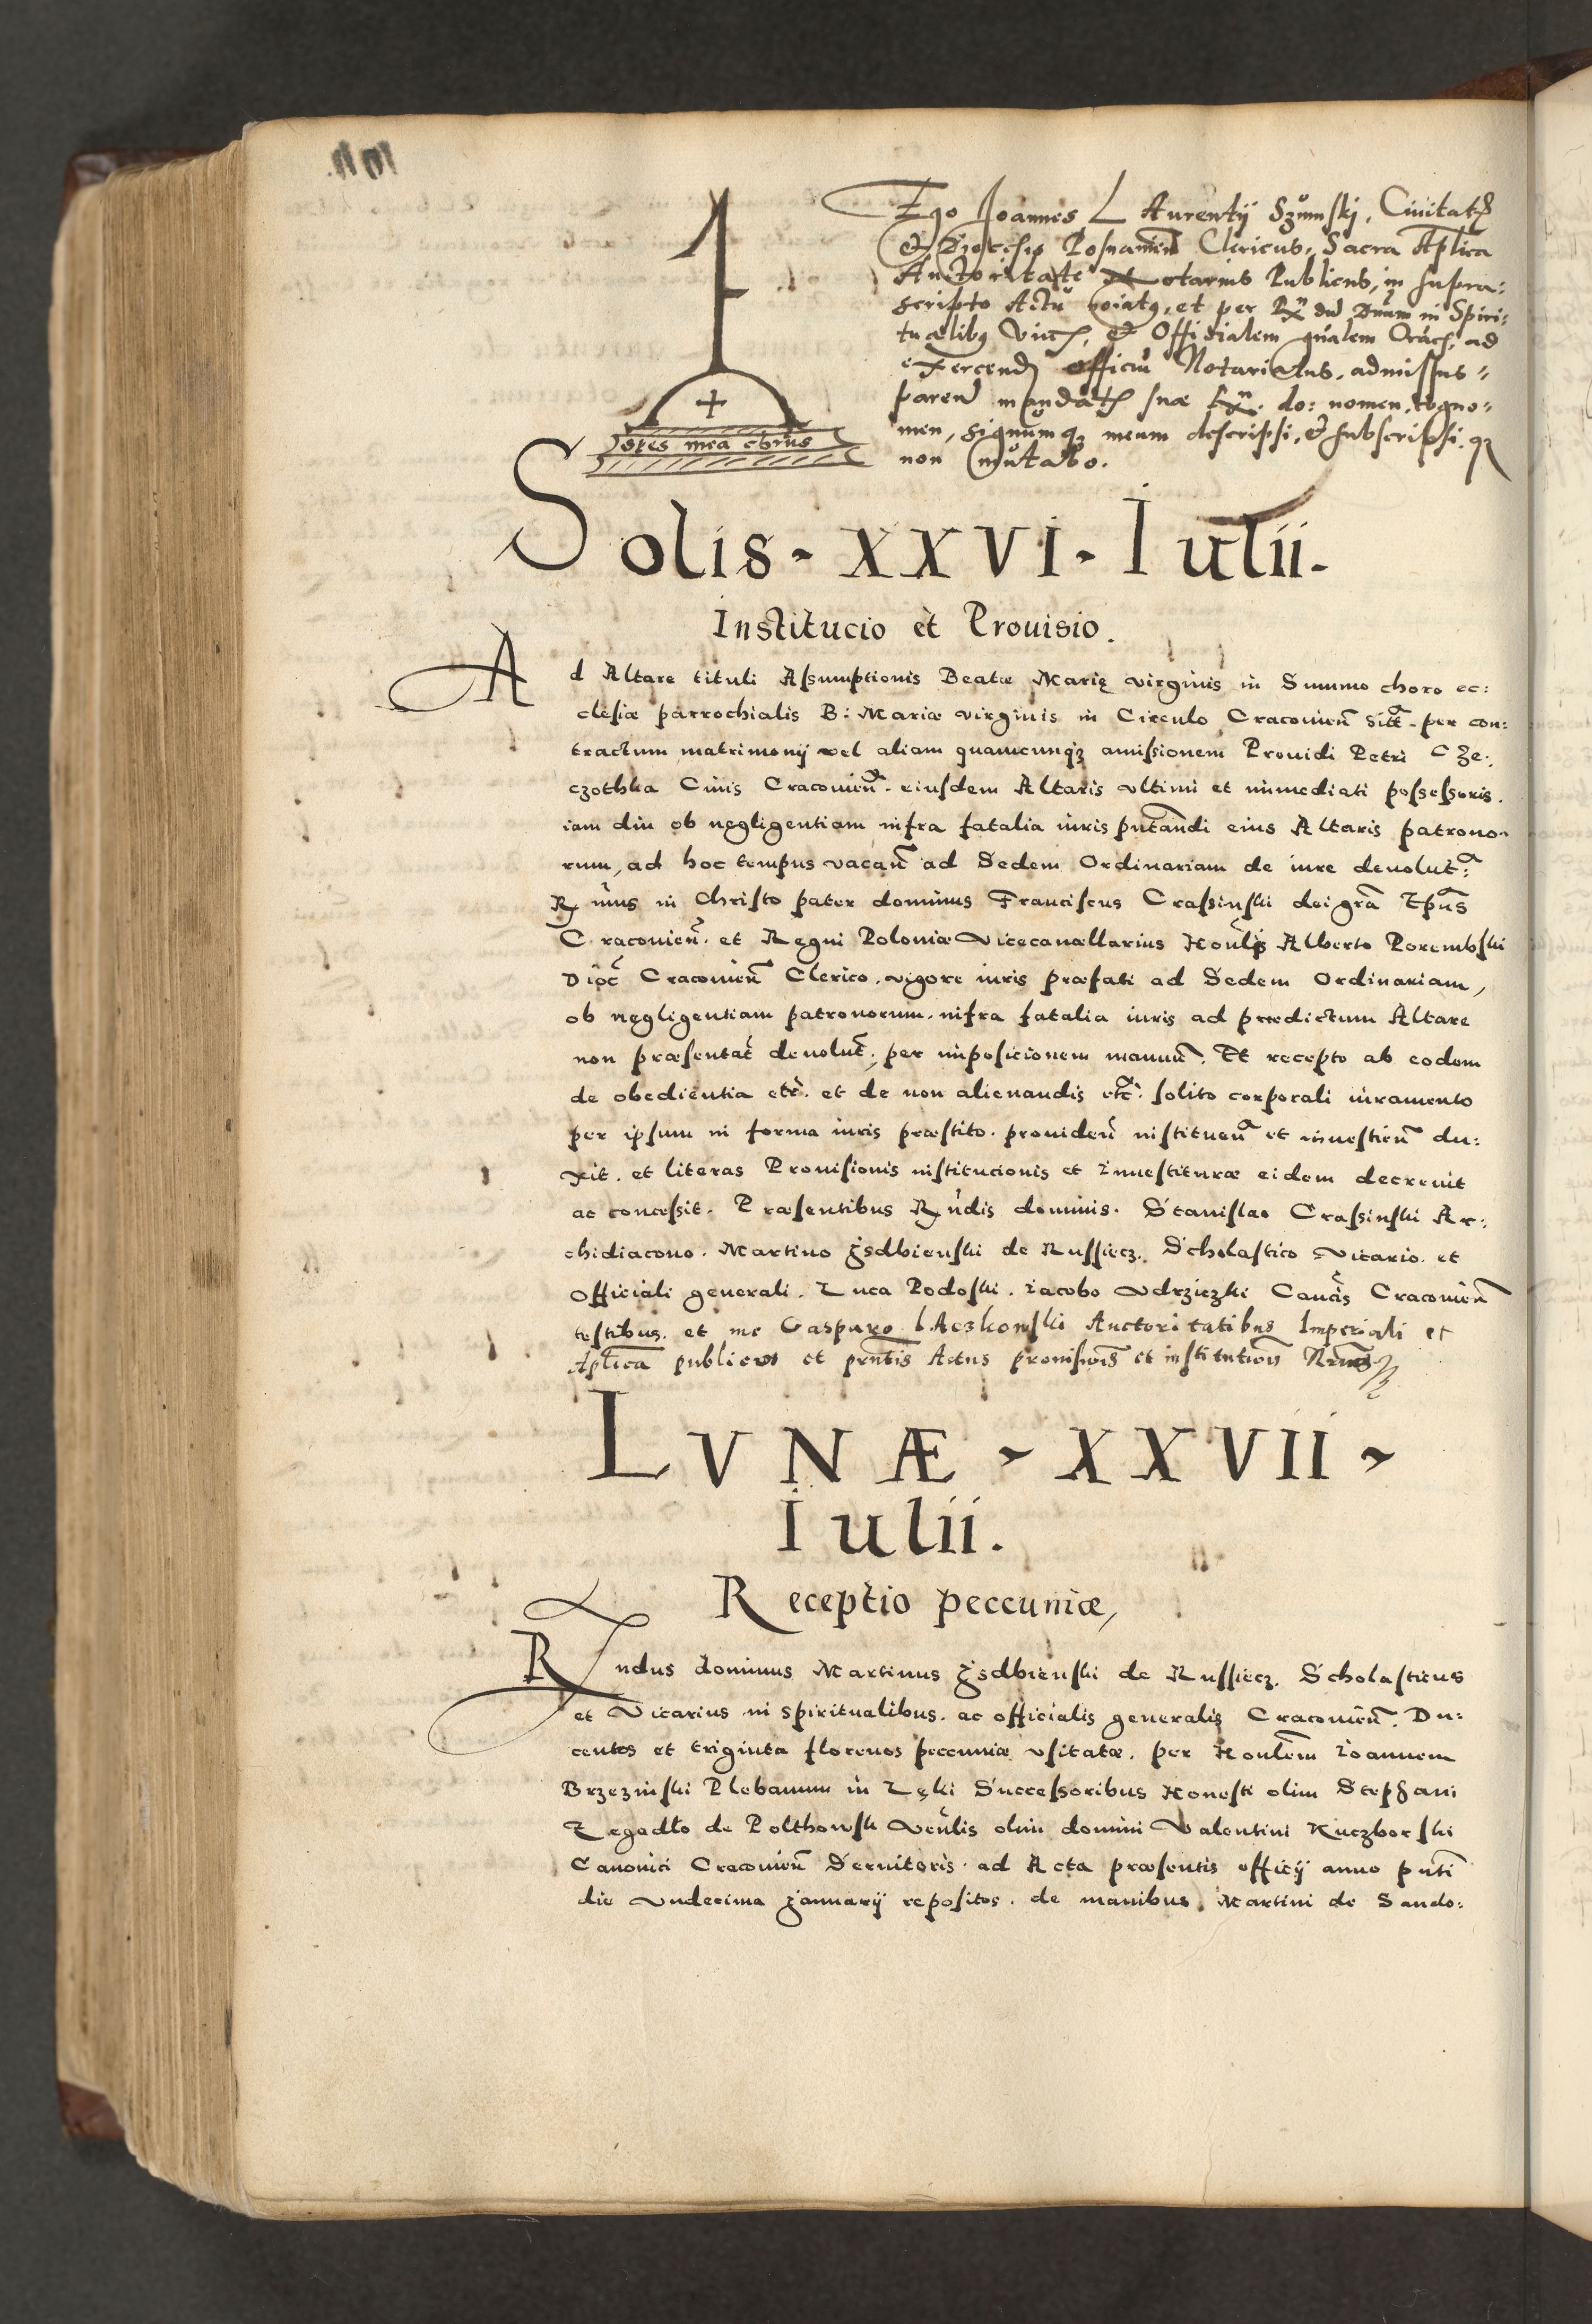 Ego Joannes LAurentij Szumskj, Ciuitatis
et Diocesis Posnanien Clericus, Sacra Aplica
Auctoritate Notarius Publicus, in supra:
scripto Actu noiatq, et per Rx dnd Dnum in Spiri:
tualibq Vic, et Officialem gnalem Crac, ad
exercend officiu Notariatus, admissus
paren mandat suae Rx. do: nomen, cogno:
men, signumq meum descripsi, et subscripsi. q
non mutabo.
spes mea chrus
Solis - XXVI - Iulii.
Institucio et Prouisio.
Ad Altare tituli Assumptionis Beatae Marię virginis in Summo choro ec:
clesiae parrochialis B: Mariae virginis in Circulo Cracouien sitt. per con:
tractum matrimonij vel aliam quamcunqz amissionem Prouidi Petri CZe:
czothka Ciuis Cracouien. eiusdem Altaris vltimi et immediati possessoris.
iam diu ob negligentiam infra fatalia iuris pntandi eius Altaris patrono:
rum, ad hoc tempus vacan ad Sedem Ordinariam de iure deuolut:
Rmus in Christo pater dominus Franciscus Crassinski dei gra Epus
Cracouien. et Regni Poloniae Vicecancellarius Honlis Alberto Porembski
Dioc Cracouien Clerico. vigore iuris praefati ad Sedem Ordinariam,
ob negligentiam patronorum. infra fatalia iuris ad praedictum Altare
non praesentat deuolut, per imposicionem manuu. Et recepto ab eodem
de obedientia etc. et de non alienandis etc. solito corporali iuramento
per ipsum in forma iuris praestito. prouiden instituen et inuestien du:
xit. et literas Prouisionis institucionis et Inuestiturae eidem decreuit
ac concessit. Praesentibus Rndis dominis. Stanislao Crassinski Ar:
chidiacono. Martino Jsdbienski de Russiecz. Scholastico Vicario. et
Officiali generali. Luca Podoski. Iacobo Vdrziczki Cancis Cracouien
testibus. et me Gasparo lAczkowski Auctoritatibus Imperiali et
Aplica publico et pntis Actus prouisiois et institutiois Nrius
LVNÆ - XXVII -
Iulii.
Receptio peccuniæ,
Rndus dominus Martinus Jsdbienski de Russiecz. Scholasticus
et Vicarius in spiritualibus. ac officialis generalis Cracouien. Du:
centos et triginta florenos peccuniæ vsitatæ. per Honlem Ioannem
Brzezinski Plebanum in Lęki Successoribus Honesti olim Stephani
Zegadło de Polthowsk Venlis olim domini Valentini Kuczborski
Canonici Cracouien Seruitoris. ad Acta praesentis officij anno pnti
die vndecima Januarij repositos. de manibus. Martini de Sando: